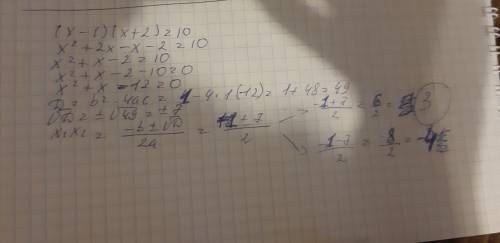 (x-1)(x+2)=10
x²+2x-x-2=10
x²+x-2=10
x²+x-2-10=0
x²+x-12=0
D=b²-4ac=1-4·1(-12)=1+48=49
√D=±√49=±7
x₁x₂ = (-b±√D)/2a = (-1±7)/2
(-1+7)/2 = 6/2 = 3
(-1-7)/2 = -8/2 = -4